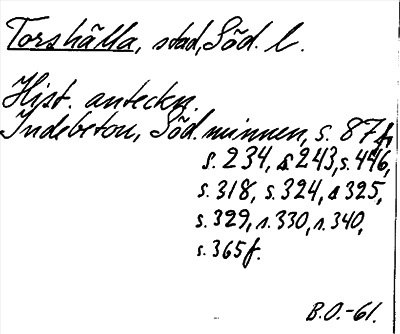 Torshälla, stad, Söd. l.
Hist. anteckn.
Indebetou, Söd. minnen, s. 87 f,
s. 234, s. 243, s. 446,
s. 318, s. 324, s 325,
s. 329, s. 330, s. 340,
s. 365 f.
B.O.-61.